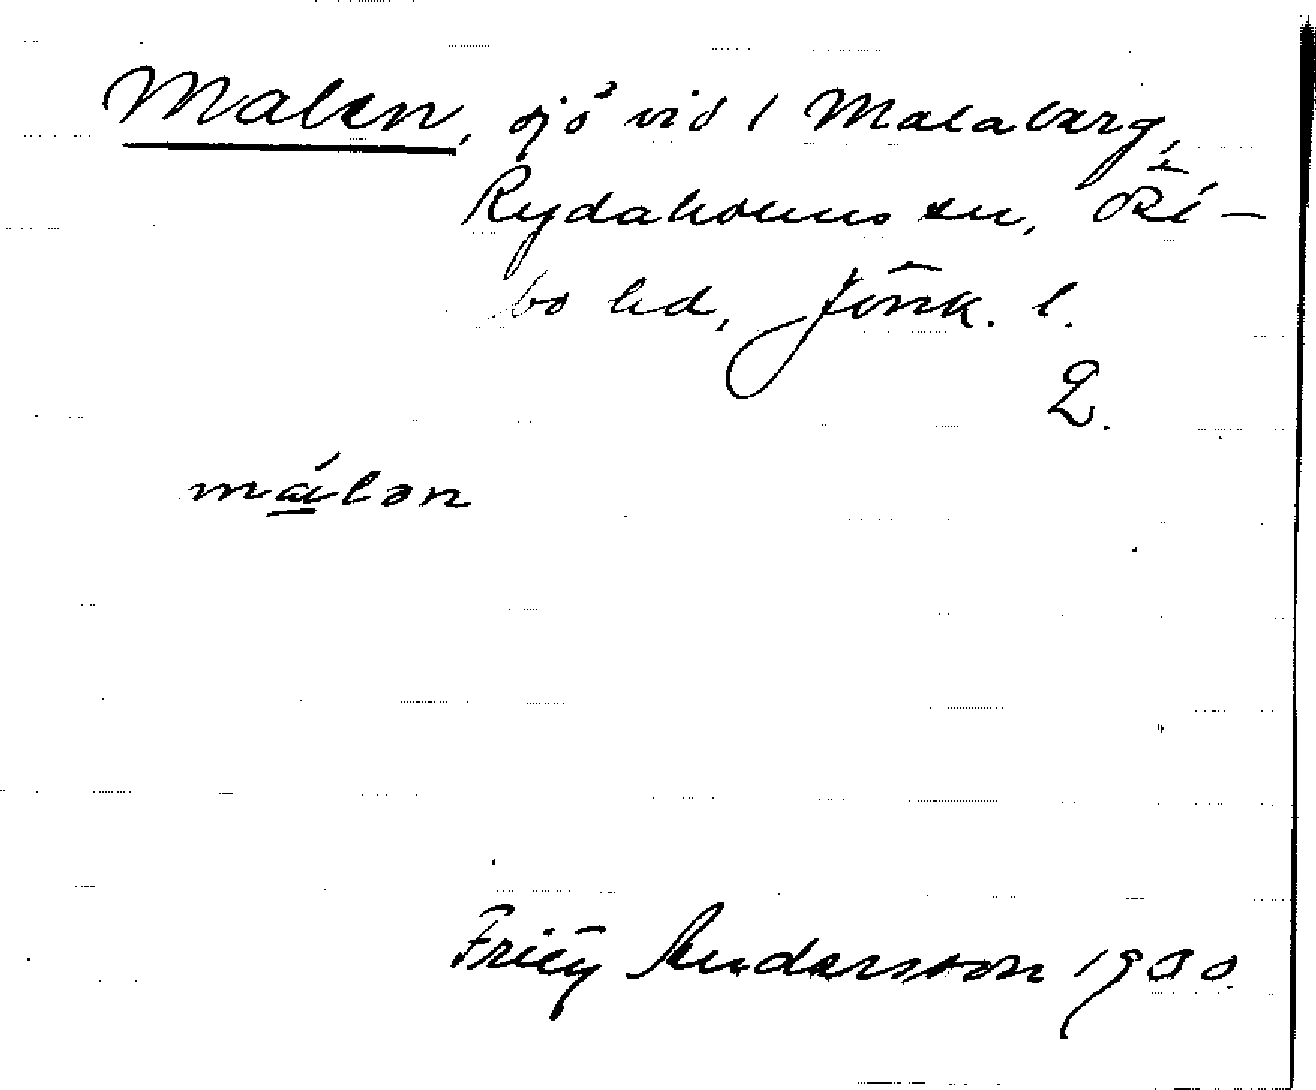 Malen, sjö vid 1 Malaberg,
Rydaholms sn, Öst-
bo hd, Jönk. l.
2.
málən
Fritz Andersson 1930.